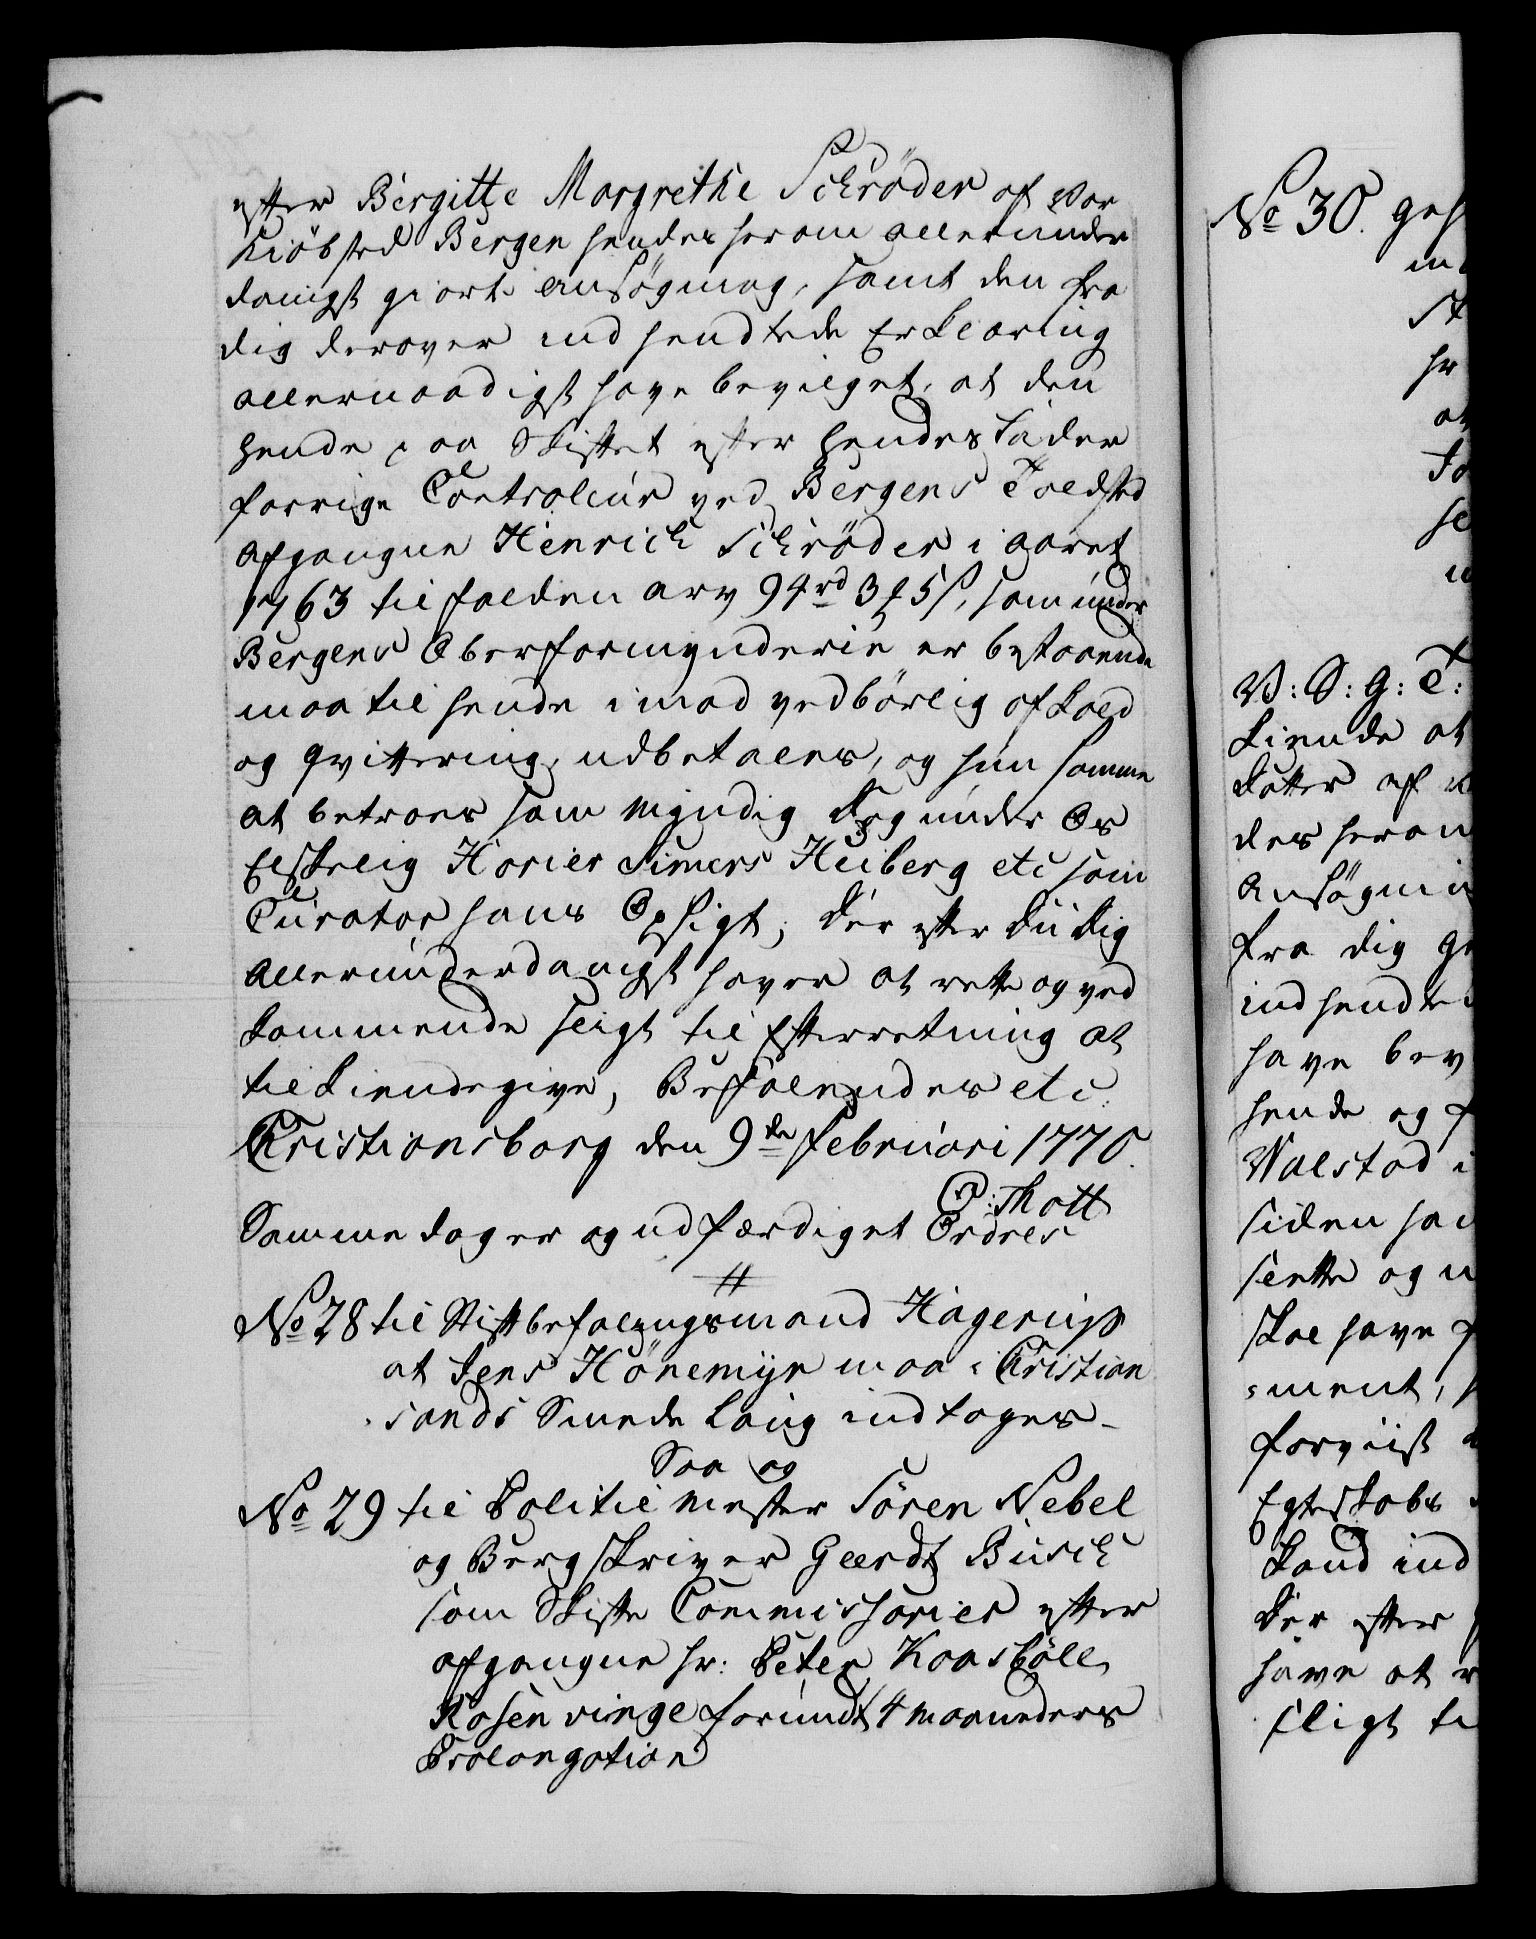 efter Birgitte Margrethe Schrøder af Vor
Kiöbsted Bergen hendes herom allerunder
danigst giorte ansøgning, samt den fra
dig derover ind sendtede Erklæring
allernaadigst have bevilget, at den
hende paa Skiftet efter hendes Fader
forrige Controleur ved Bergens Toldsted
afgangne Henrich Schrøder i aaret
1763 til falden arv 94 rd 3 ʒ 5 s, som under
Bergens Oberformynderie er bestaaende
maa til hende imod vedbörlig afkald
og qvittering, udbetales, og hun samme
at betroes som myndig dog under Os
Elskelig Horier Simers Heiberg etc som
Curator hans Opsigt; Der efter Du dig
allerunderdanigst haver at rette og ved
kommende sligt til Efterretning at
tilkiendegive, Befalendes etc.
Cristiansborg den 9de Februari 1770.
O: Thott
Samme dag er og udfærdiget Ordres
No 28 til Stiftbefalingsmand Hagerup
at Jens Hönemyr maa i Cristian
sands Smede Laug indtages
Saa og
No 29 til Politie Mester Sören Nebel
og Bergskriver Geerdt Busch
som Skifte Commissarier efter
afgangne hr: Peter Kaasböll
Rosenvinge forundt 4 maaneders
Prolongation
No 30.
V: S: G: T:
kiende at
Datter af
des herom
Ansögnin
fra dig
indsendte
have bev
hende og
Walstad i
siden
sætte og
skal have
ment,
forviist
Egteskabs
Land ind
Der efter
have at
sligt ti